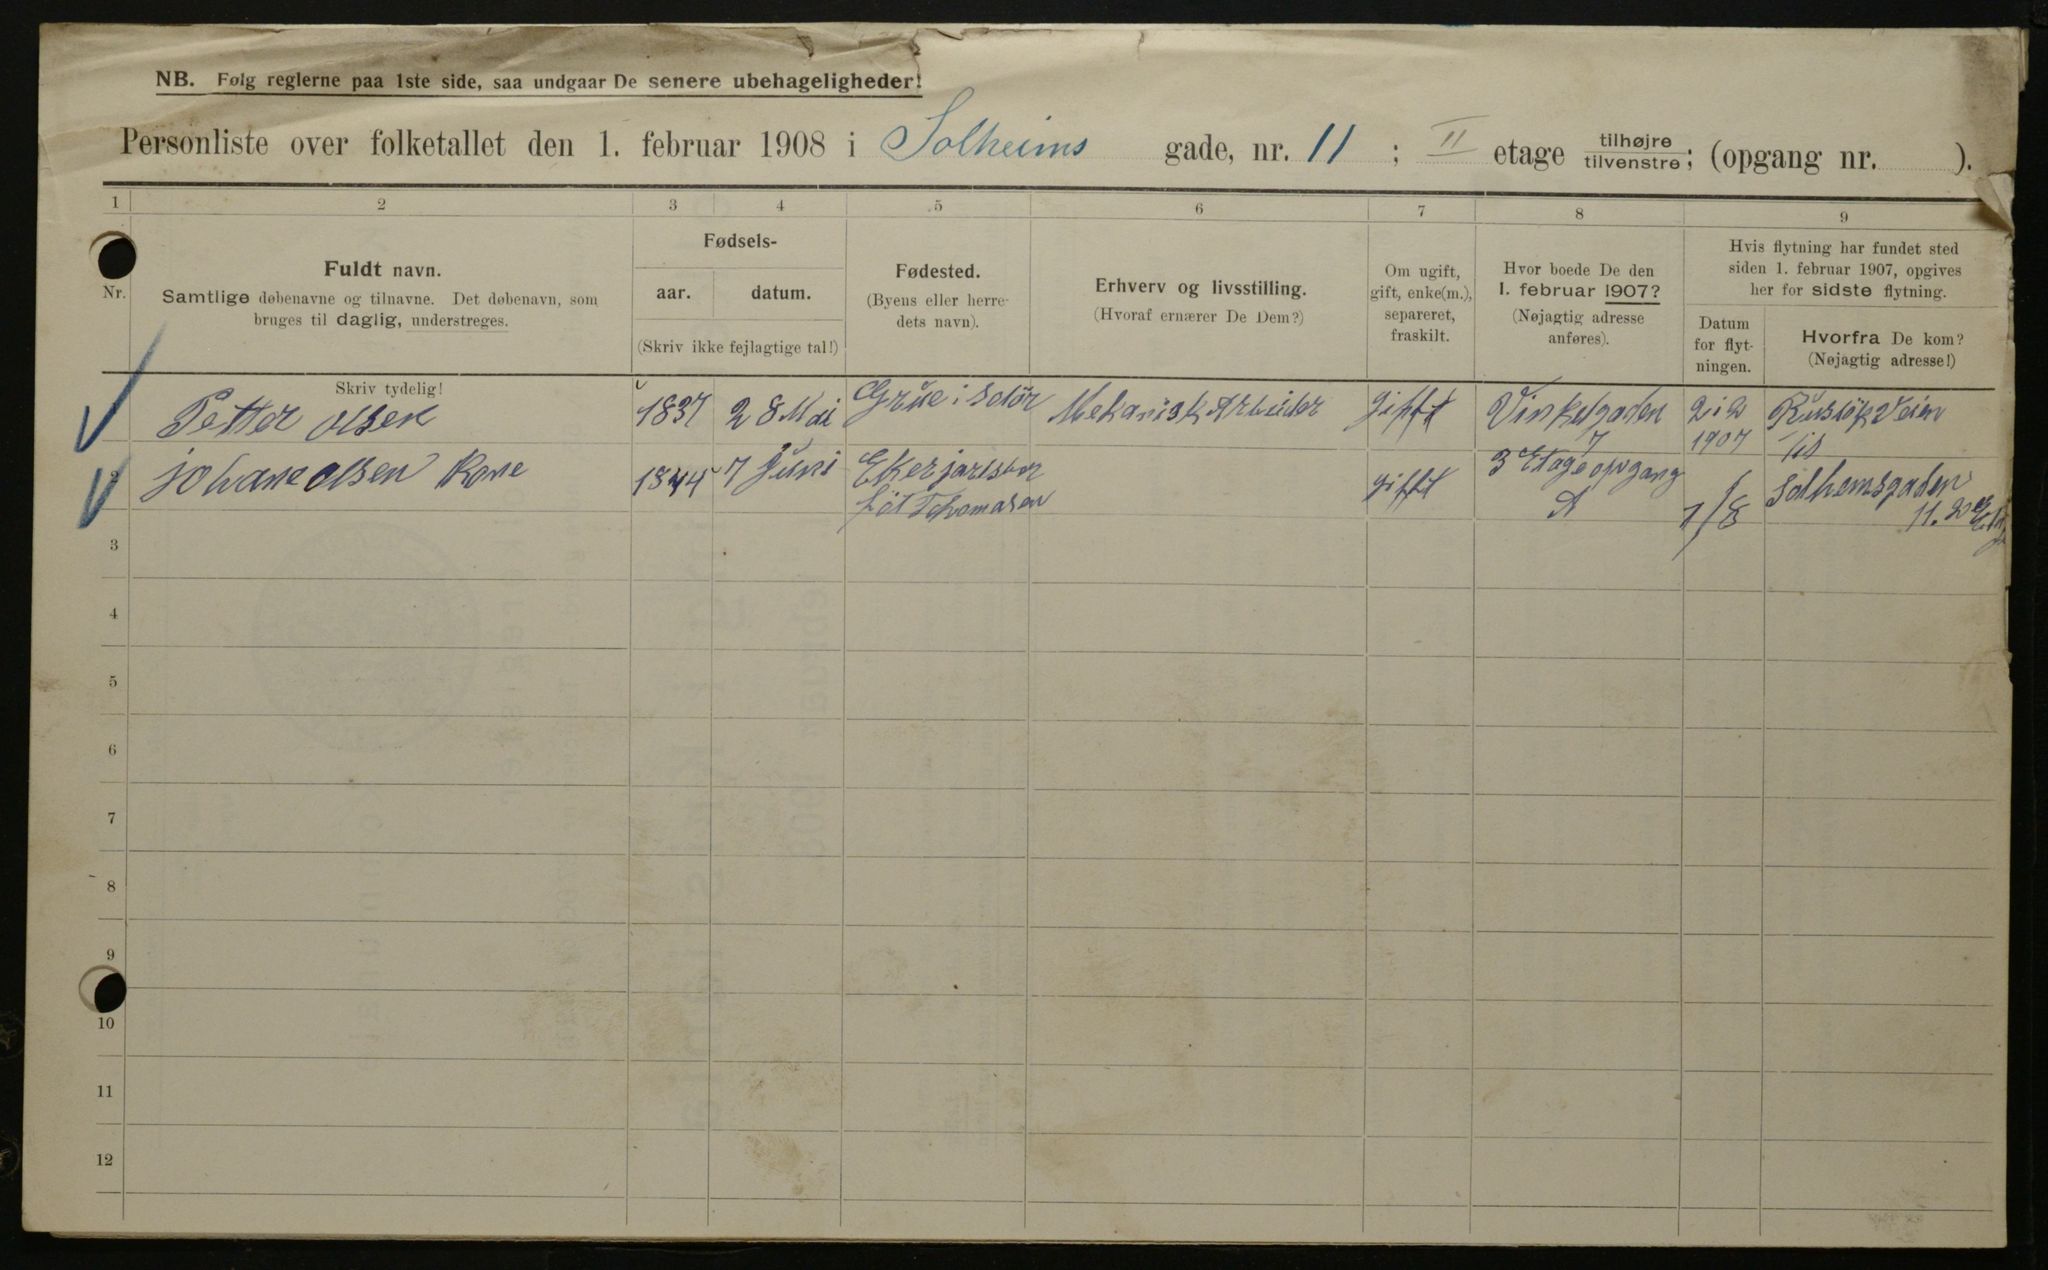 NB. Følg reglerne paa 1ste side, saa undgaar De senere ubehageligheder!
Personliste over folketallet den 1. februar 1908 i Solheims gade, nr. 11 ; II etage tilhøjre tilvenstre; (opgang nr. ).
1 2 3 4 5 6 7 8 9
Nr.
Fuldt navn.
Samtlige døbenavne og tilnavne. Det døbenavn, som
bruges til daglig, understreges.
Skriv tydelig!
Fødsels-
aar. datum.
(Skriv ikke fejlagtige tal!)
Fødested.
(Byens eller herre-
dets navn).
Erhverv og livsstilling.
(Hvoraf ernærer De Dem?)
Om ugift,
gift, enke(m.),
separeret,
fraskilt.
Hvor boede De den
1. februar 1907?
(Nøjagtig adresse
anføres).
Hvis flytning har fundet sted
siden 1. februar 1907, opgives
her for sidste flytning.
Datum
for flyt-
ningen.
Hvorfra De kom?
(Nøjagtig adresse!)
Petter Olsen 1837 28 Mai Grue i Solør Mekanisk Arbeider gift Vinkelgaden 7
1907
Ruslök Veien
2 johane Olsen Kone 1844 7 Juni Eker jarlsber
föt Thomasen
gift
3 Etage opgang
A
Solhemsgaden
11. 2
3
4
5
6
7
8
9
10
11
12